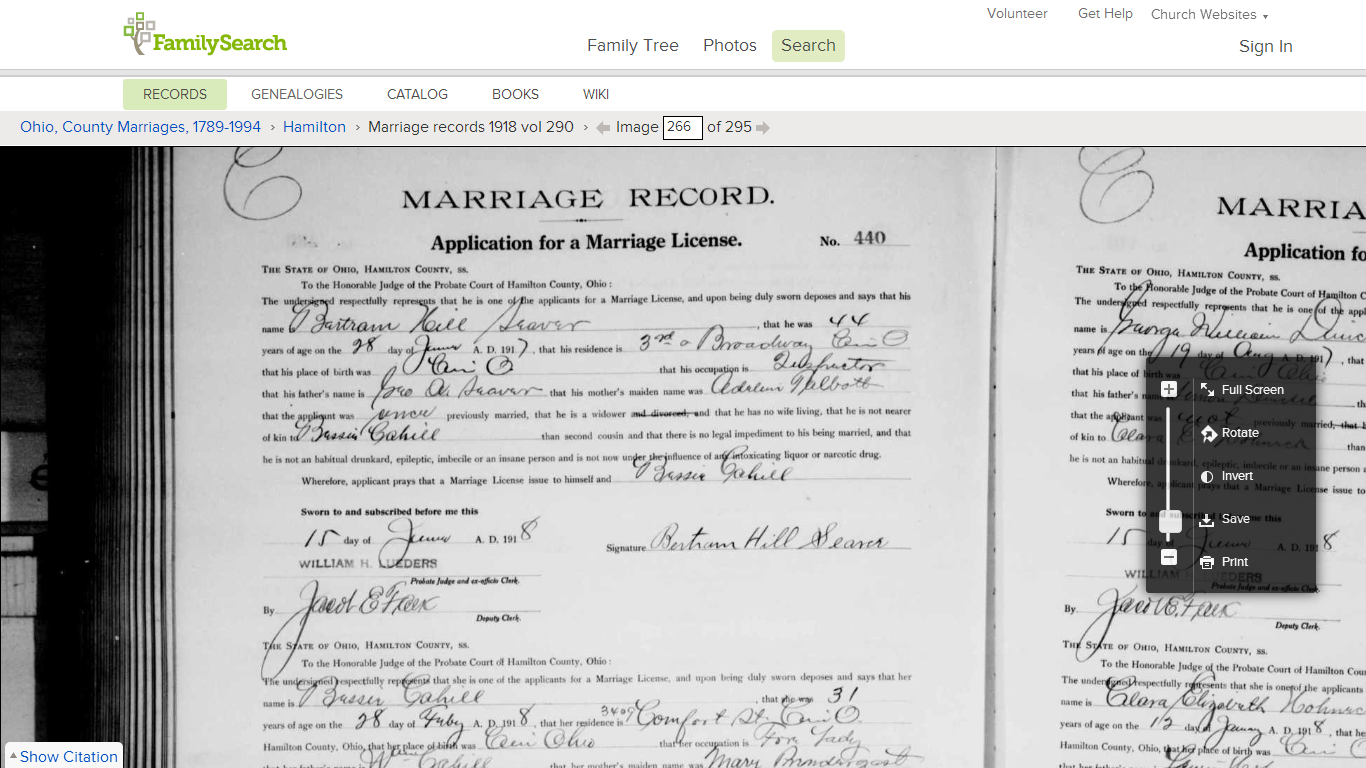 Volunteer Get Help Church Websites
FamilySearch
Family Tree Photos Search
Sign In
RECORDS GENEALOGIES CATALOG BOOKS WIKI
Ohio, County Marriages, 1789-1994 › Hamilton › Marriage records 1918 vol 290 › Image 266 of 295
C
MARRIAGE RECORD.
Application for a Marriage License. No. 440
THE STATE OF OHIO, HAMILTON COUNTY, ss.
To the Honorable Judge of the Probate Court of Hamilton County, Ohio :
The undersigned respectfully represents that he is one of the applicants for a Marriage License, and upon being duly sworn deposes and says that his
name Bertram Hill Seaver, that he was 44
years of age on the 28 day of June A. D. 1917, that his residence is 3rd & Broadway Cin O
that his place of birth was Cin O that his occupation is Inspector
that his father's name is Geo A. Seaver that his mother's maiden name was Talbott
that the applicant was once previously married, that he is a widower and divorced, and that he has no wife living, that he is not nearer
of kin to Bessie Cahill than second cousin and that there is no legal impediment to his being married, and that
he is not an habitual drunkard, epileptic, imbecile or an insane person and is not now under the influence of any intoxicating liquor or narcotic drug.
Wherefore, applicant prays that a Marriage License issue to himself and Bessie Cahill
Sworn to and subscribed before me this
15 day of June A. D. 1918
Signature Bertram Hill Seaver
WILLIAM H. LUEDERS
Probate Judge and ex-officio Clerk.
By Jacob E. Fleck
Deputy Clerk.
THE STATE OF OHIO, HAMILTON COUNTY, ss.
To the Honorable Judge of the Probate Court of Hamilton County, Ohio :
The undersigned respectfully represents that she is one of the applicants for a Marriage License, and upon being duly sworn deposes and says that her
name is Bessie Cahill, that she was 31
years of age on the 28 day of Feby A. D. 1918, that her residence is 3409 Comfort St. Cin O.
Hamilton County, Ohio, that her place of birth was Cin Ohio that her occupation is Fore Lady
that her father's name is Wm Cahill that her mother's maiden name was Mary
C
MARRIA
Application fo
THE STATE OF OHIO, HAMILTON COUNTY, ss.
To the Honorable Judge of the Probate Court of Hamilton C
The undersigned respectfully represents that he is one of the appl
name is George William
years of age on the 19 day of Aug A. D. 191, that
that his place of birth was Cin Ohio
that his father's
that the applicant was not previously married, that he
of kin to Clara
he is not an habitual drunkard, epileptic, imbecile or an insane person a
Wherefore, applicant prays that a Marriage License issue to
Sworn to and subscribed before me this
15 day of June A. D. 1918
WILLIAM H. LUEDERS
Probate Judge and ex-officio Clerk.
By Jacob E. Fleck
Deputy Clerk.
THE STATE OF OHIO, HAMILTON COUNTY, ss.
To the Honorable Judge of the Probate Court of Hamilton Coun
The undersigned respectfully represents that she is one of the applicants
name is Clara Elizabeth
years of age on the 12 day of January A. D. 1918, that he
Hamilton County, Ohio, that her place of birth was Cin O
Full Screen
Rotate
Invert
Save
Print
Show Citation